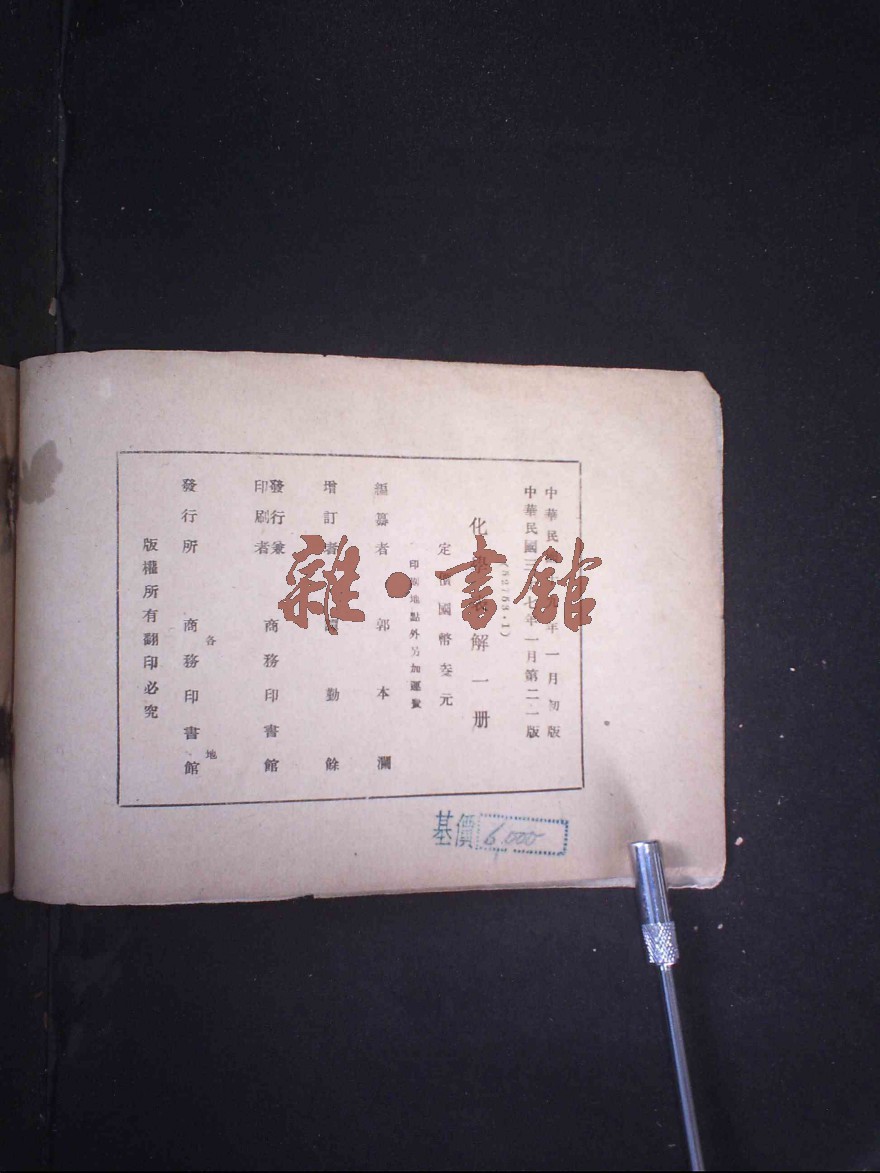 中華民 年一月初版
中華民國三 七年一月第二一版
化 解一册
定 國幣叁元
印刷地點外另加運費
編纂者 郭本瀾
增訂者 勤餘
發行兼印刷者 商務印書館
發行所 各地商務印書館
版權所有翻印必究
基價 6.000
雜·書館